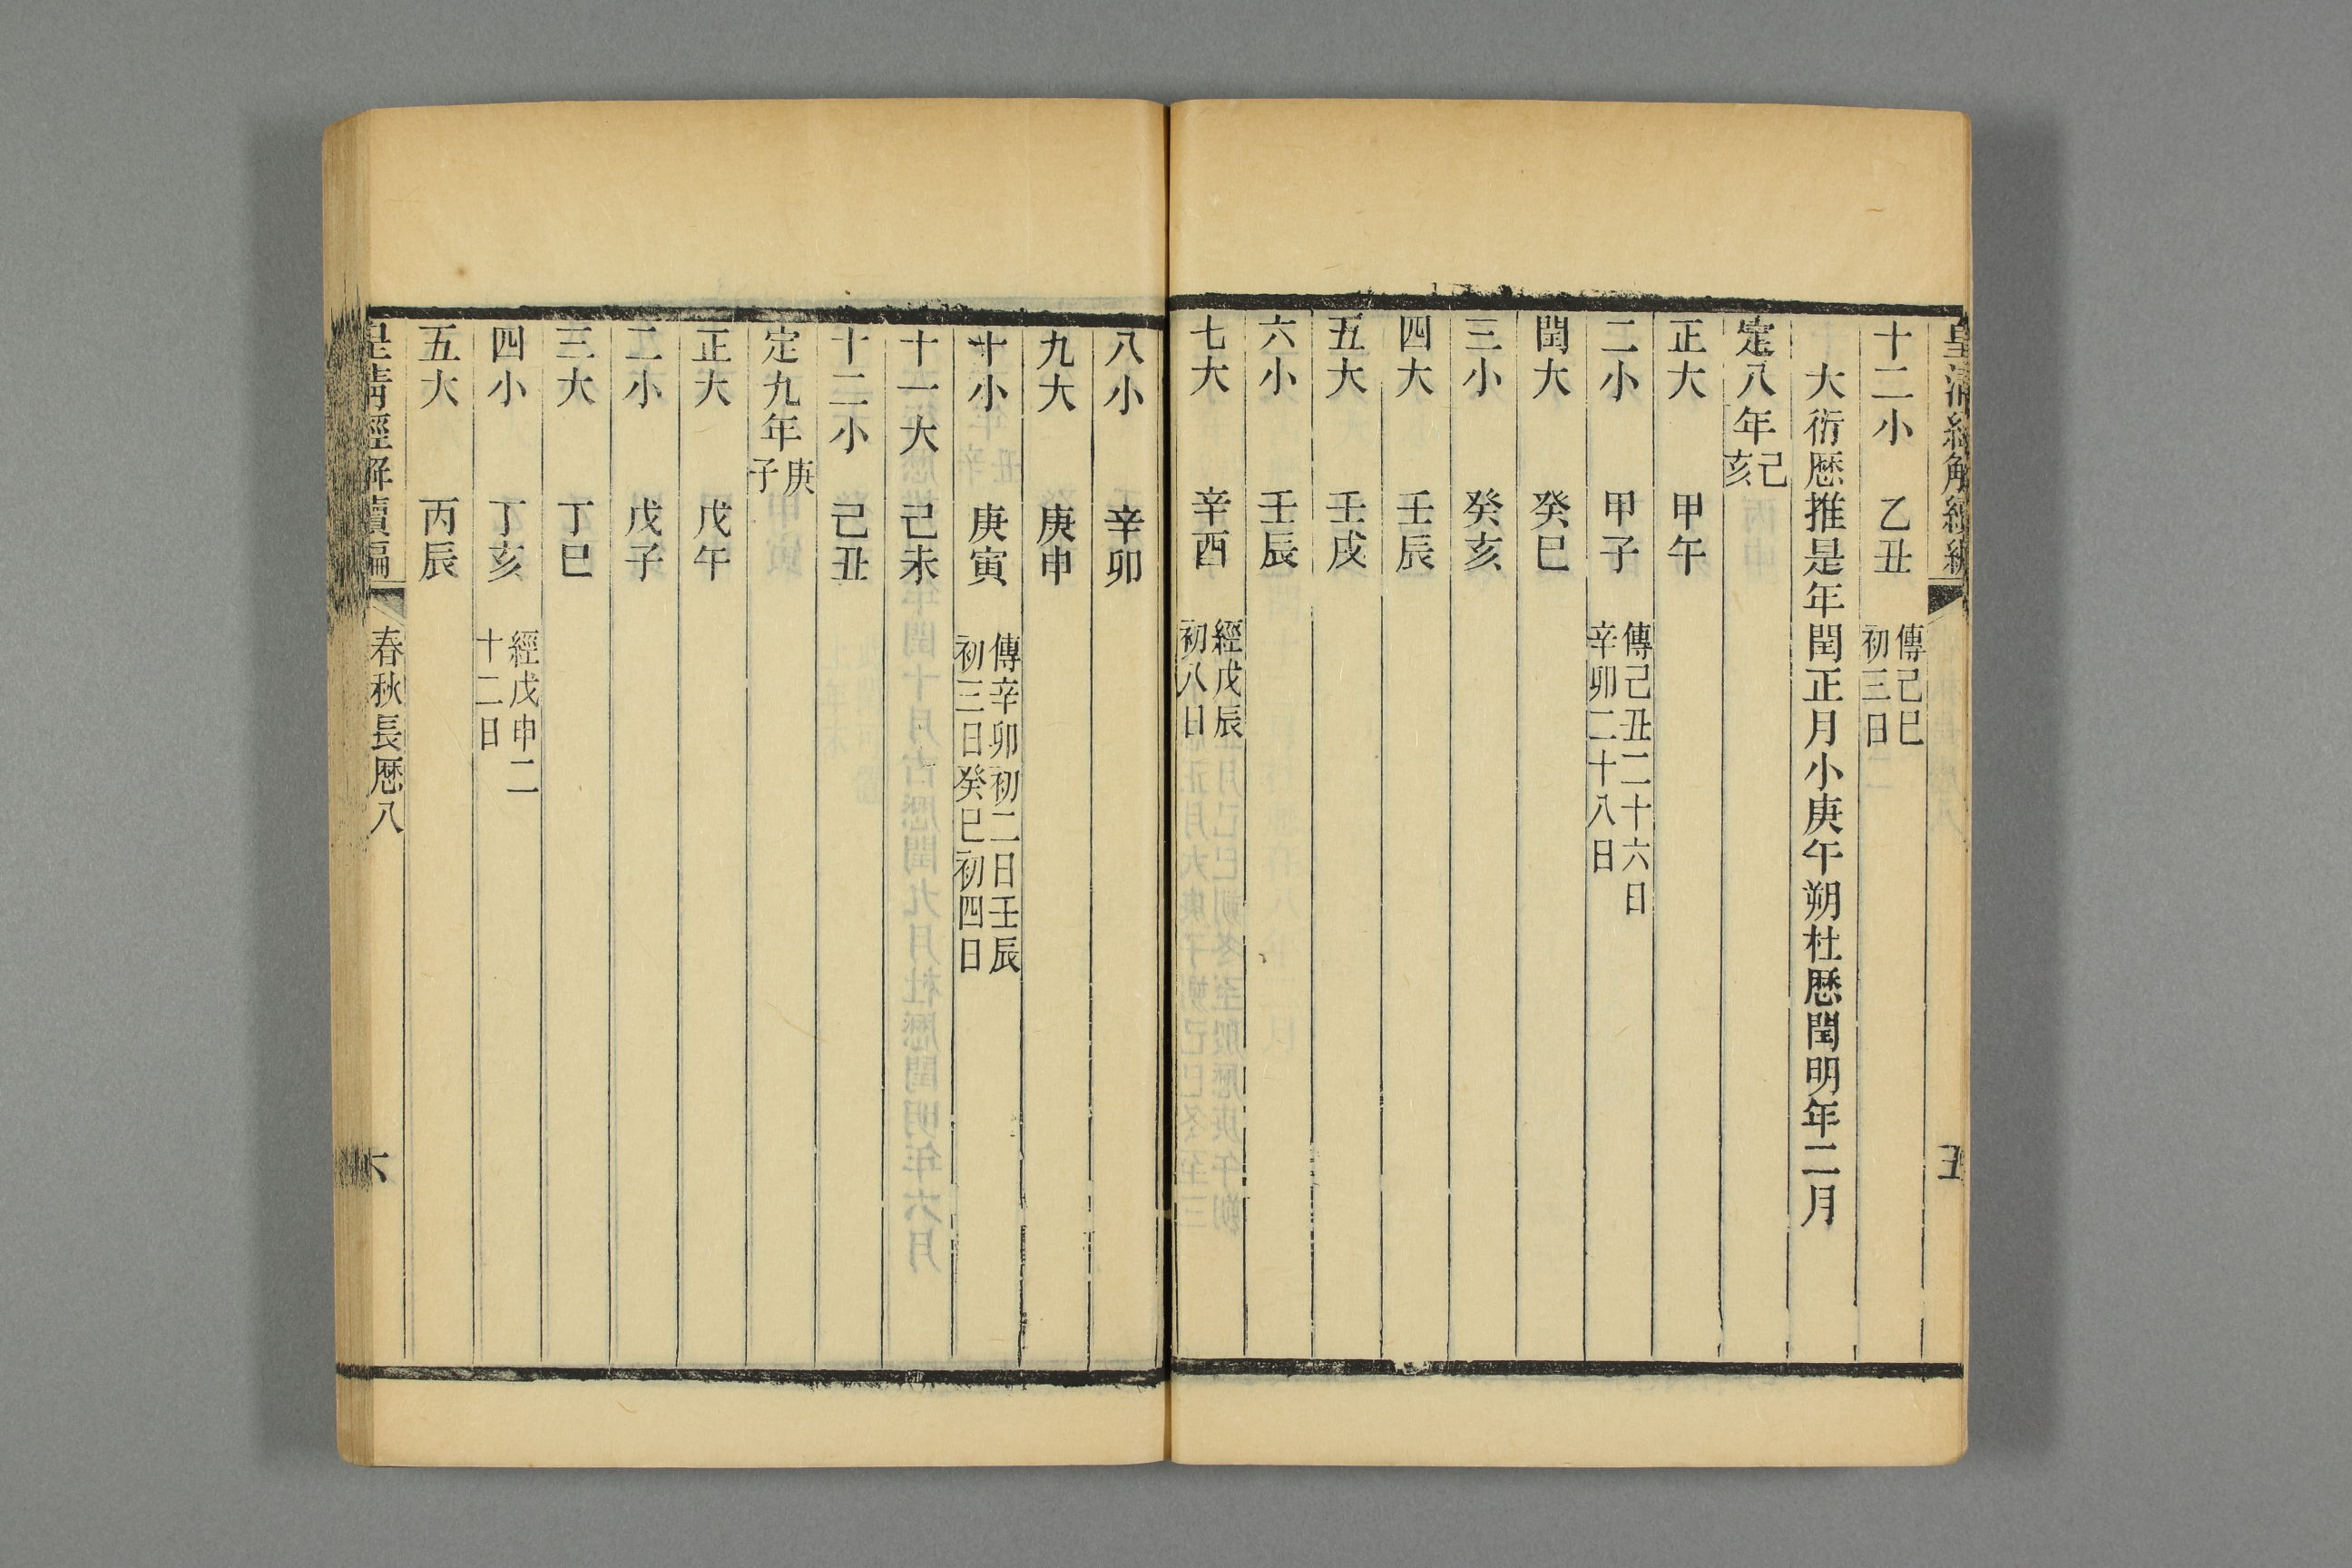 皇清經解續編
五
十二小 乙丑 傳己巳
初三日
大衍厯推是年閏正月小庚午朔杜厯閏明年二月
定八年己
亥
正大 甲午
二小 甲子 傳己丑二十六日
辛卯二十八日
閏大 癸巳
三小 癸亥
四大 壬辰
五大 壬戌
六小 壬辰
七大 辛酉 經戊辰
初八日
八小 辛卯
九大 庚申
十小 庚寅 傳辛卯初二日壬辰
初三日癸巳初四日
十一大 己未
十二小 己丑
定九年庚
子
正大 戊午
二小 戊子
三大 丁巳
四小 丁亥 經戊申二
十二日
五大 丙辰
皇清經解續編 春秋長厯八 六